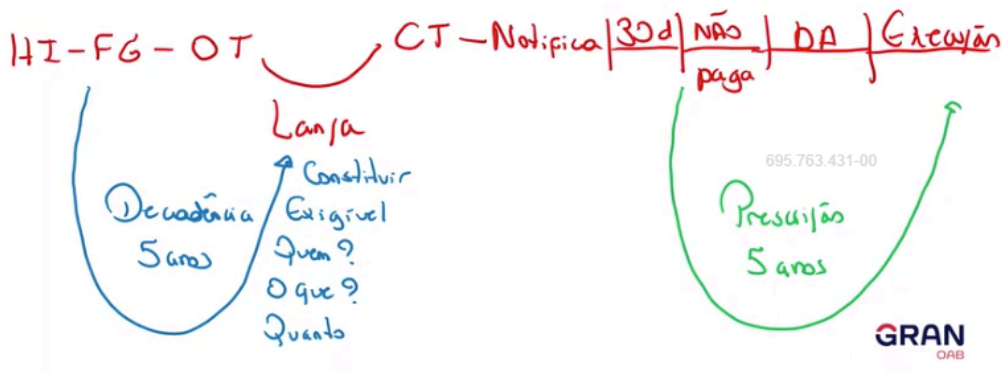 HI-FG-OT CT-Notifica|30d|NÃO|DA|Execução
paga
Lança
Constituir
Exigível
Quem?
O que?
Quanto
Decadência
5 anos
695.763.431-00
Prescrição
5 anos
GRAN
OAB